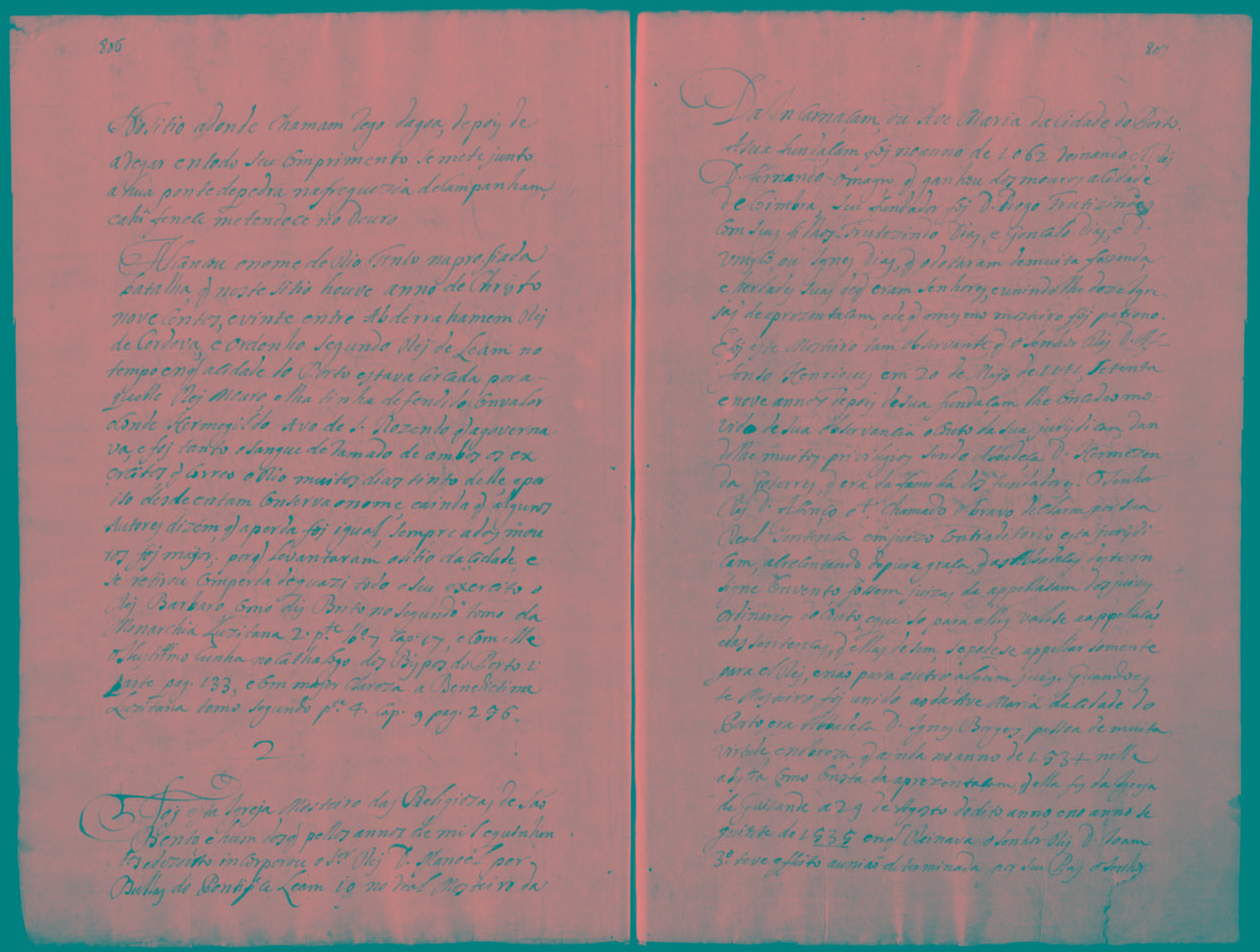 806
No sitio adonde chamam Pego dagoa, depois de
a regar em todo seu comprimento se mete junto
a hua ponte de pedra na freguezia de Campanham,
e ahi fenece metendoce no Douro
Alcansou o nome de Rio Tinto na profiada
batalha q neste sitio houve anno de Christo
nove centos, e vinte entre Abderrahamem Rej
de Cordova, e Ordonho segundo Rej de Leam no
tempo en q a cidade do Porto estava cercada por a-
quelle Rej Mouro e lha tinha defendido o
conde Hermogildo Avo de S. Rozendo q a governa
va, e foj tanto o sangue derramado de ambos os ex
ercitos q correo o Rio muitos dias tinto delle e por
isso desde entam conserva o nome, e ainda q alguns
Autores dizem q a perda foj igual, sempre a dos mou
ros foj major, porq levantaram o sitio da cidade, e
se retirou com perda de quazi todo o seu exercito o
Rej Barbaro, como diz Brito no segundo tomo da
Monarchia Luzitana 2. pte. cap. 17, e com elle
o Illustrissimo Cunha no Cathalogo dos Bispos do Porto 1ª
parte pag. 133, e com major clareza a Benedictina
Luzitana tomo segundo pte. 4. cap. 9 pag. 256.
2
Foj esta Igreja Mosteiro das Religiozas de São
Bento e hum dos q pellos annos de mil e quinhen
tos e dezoito incorporou o Sr Rej D. Manoel por
Bullas do Pontifice Leam 10 no Real Mosteiro da
807
Da Incarnacam, ou Ave Maria da Cidade do Porto.
A sua fundasam foj no anno de 1062 reinando el Rej
D. Fernando o magno q ganhou dos mouros a cidade
de Coimbra, seu fundador foj D. Diogo Trutizindes
com seus filhos Trutezindo Dias, e Gonsalo Dias, e D.
ou Ignes Dias, q o dotaram de muita fazenda
e herdades suas de q eram senhores, e unindo lhe doze Igre
jas de aprezentasam, ele q o mesmo mosteiro foj patrono.
E foj este Mosteiro tam observante q o senhor Rej D. Af-
fonso Henriques em 20 de Majo de 1141, setenta
e nove annos depois de sua fundasam lhe concedeo mo
vido de sua observancia o couto da sua jurisdicam, dan
dolhe muitos privilegios sendo Abbadeça D. Hermezen
da Goterres, q era da familia dos fundadores. O senhor
Rej D. Afonço o 4º chamado o bravo declarou por sua
Real sentença em juizo contraditorio esta jurisdi
cam, acrecentando de pura graça, q as Abbadeças deste in
signe convento fossem juizas da appellasam dos juizes
ordinarios do couto, e que so para ellas valese a appellasão
das sentenças, q dellas desem, se podese appellar somente
para el Rej, e nao para outro algum juiz. Quando es
te Mosteiro foj unido ao da Ave Maria da cidade do
Porto era Abbadeça D. Ignes Borges, pessoa de muita
virtude, e nobreza, q ainda no anno de 1534 nelle
como consta da aprezentasam q ella fes da Igreja
de Guizande a 29 de Agosto do dito anno e no anno se
guinte de 1535 en q Reinava o senhor Rej D. Joam
3º teve effeito a uniaõ determinada por seu Paj o senhor